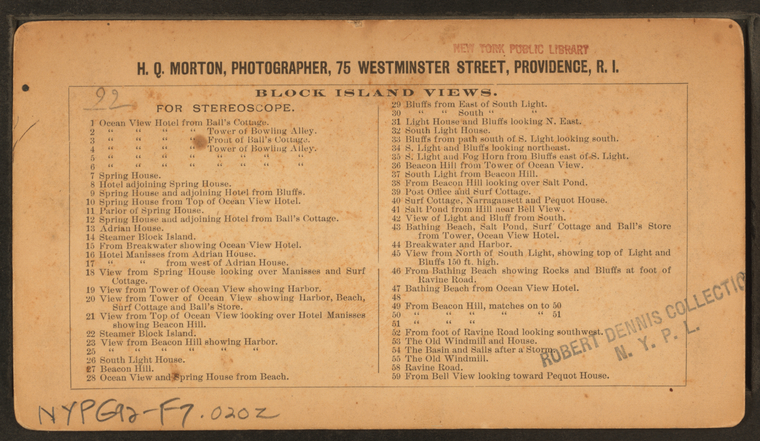 NEW YORK PUBLIC LIBRARY
H. Q. MORTON, PHOTOGRAPHER, 75 WESTMINSTER STREET, PROVIDENCE, R. I.
92
BLOCK ISLAND VIEWS.
FOR STEREOSCOPE.
1 Ocean View Hotel from Ball's Cottage.
2 " " " " Tower of Bowling Alley.
3 " " " " Front of Ball's Cottage.
4 " " " " Tower of Bowling Alley.
5 " " " " " " " "
6 " " " " " " " "
7 Spring House.
8 Hotel adjoining Spring House.
9 Spring House and adjoining Hotel from Bluffs.
10 Spring House from Top of Ocean View Hotel.
11 Parlor of Spring House.
12 Spring House and adjoining Hotel from Ball's Cottage.
13 Adrian House.
14 Steamer Block Island.
15 From Breakwater showing Ocean View Hotel.
16 Hotel Manisses from Adrian House.
17 " " from west of Adrian House.
18 View from Spring House looking over Manisses and Surf
Cottage.
19 View from Tower of Ocean View showing Harbor.
20 View from Tower of Ocean View showing Harbor, Beach,
Surf Cottage and Ball's Store.
21 View from Top of Ocean View looking over Hotel Manisses
showing Beacon Hill.
22 Steamer Block Island.
23 View from Beacon Hill showing Harbor.
25 " " " " " "
26 South Light House.
27 Beacon Hill.
28 Ocean View and Spring House from Beach.
29 Bluffs from East of South Light.
30 " " South " "
31 Light House and Bluffs looking N. East.
32 South Light House.
33 Bluffs from path south of S. Light looking south.
34 S. Light and Bluffs looking northeast.
35 S. Light and Fog Horn from Bluffs east of S. Light.
36 Beacon Hill from Tower of Ocean View.
37 South Light from Beacon Hill.
38 From Beacon Hill looking over Salt Pond.
39 Post Office and Surf Cottage.
40 Surf Cottage, Narragansett and Pequot House.
41 Salt Pond from Hill near Bell View.
42 View of Light and Bluff from South.
43 Bathing Beach, Salt Pond, Surf Cottage and Ball's Store
from Tower, Ocean View Hotel.
44 Breakwater and Harbor.
45 View from North of South Light, showing top of Light and
Bluffs 150 ft. high.
46 From Bathing Beach showing Rocks and Bluffs at foot of
Ravine Road.
47 Bathing Beach from Ocean View Hotel.
48
49 From Beacon Hill, matches on to 50
50 " " " " " 51
51 " " "
52 From foot of Ravine Road looking southwest.
53 The Old Windmill and House.
54 The Basin and Sails after a Storm.
55 The Old Windmill.
58 Ravine Road.
59 From Bell View looking toward Pequot House.
ROBERT DENNIS COLLECTIO
N. Y. P. L.
NYPG92-F7.0202